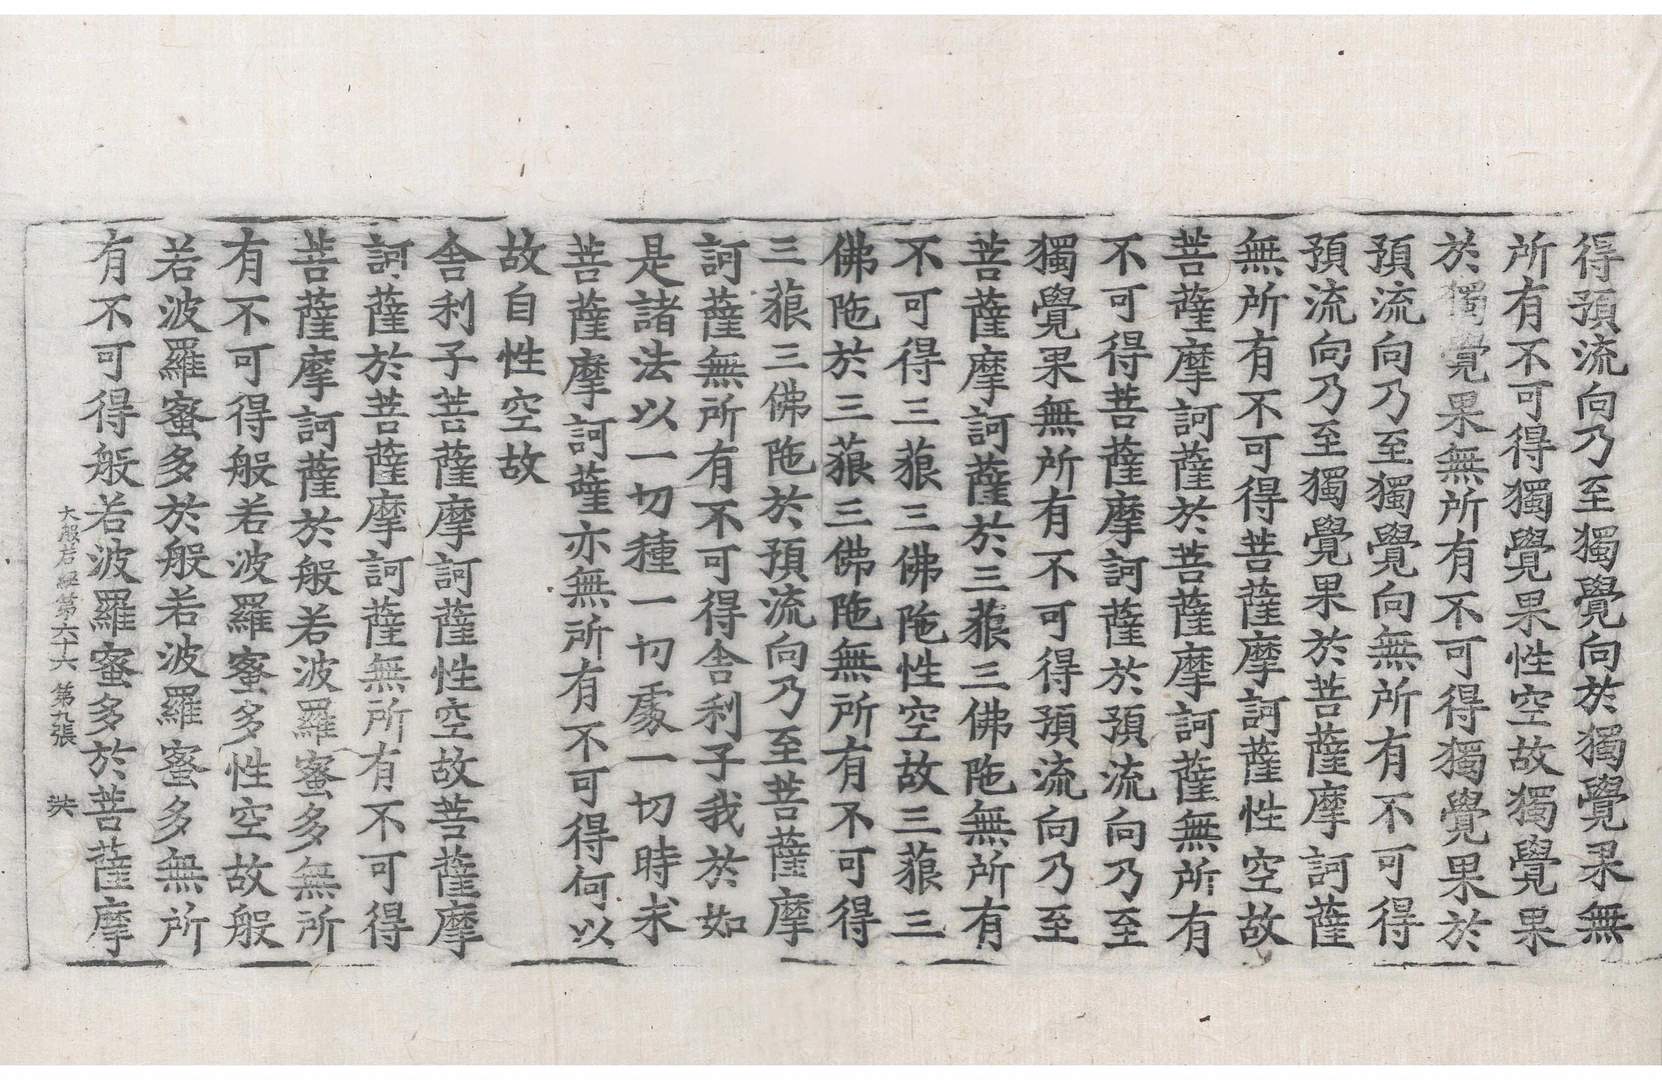 得預流向乃至獨覺向於獨覺果無
所有不可得獨覺果性空故獨覺果
於獨覺果無所有不可得獨覺果於
預流向乃至獨覺向無所有不可得
預流向乃至獨覺果於菩薩摩訶薩
無所有不可得菩薩摩訶薩性空故
菩薩摩訶薩於菩薩摩訶薩無所有
不可得菩薩摩訶薩於預流向乃至
獨覺果無所有不可得預流向乃至
菩薩摩訶薩於三藐三佛陁無所有
不可得三藐三佛陁性空故三藐三
佛陁於三藐三佛陁無所有不可得
三藐三佛陁於預流向乃至菩薩摩
訶薩無所有不可得舍利子我於如
是諸法以一切種一切處一切時求
菩薩摩訶薩亦無所有不可得何以
故自性空故
舍利子菩薩摩訶薩性空故菩薩摩
訶薩於菩薩摩訶薩無所有不可得
菩薩摩訶薩於般若波羅蜜多無所
有不可得般若波羅蜜多性空故般
若波羅蜜多於般若波羅蜜多無所
有不可得般若波羅蜜多於菩薩摩
大般若經第六十六 第九張